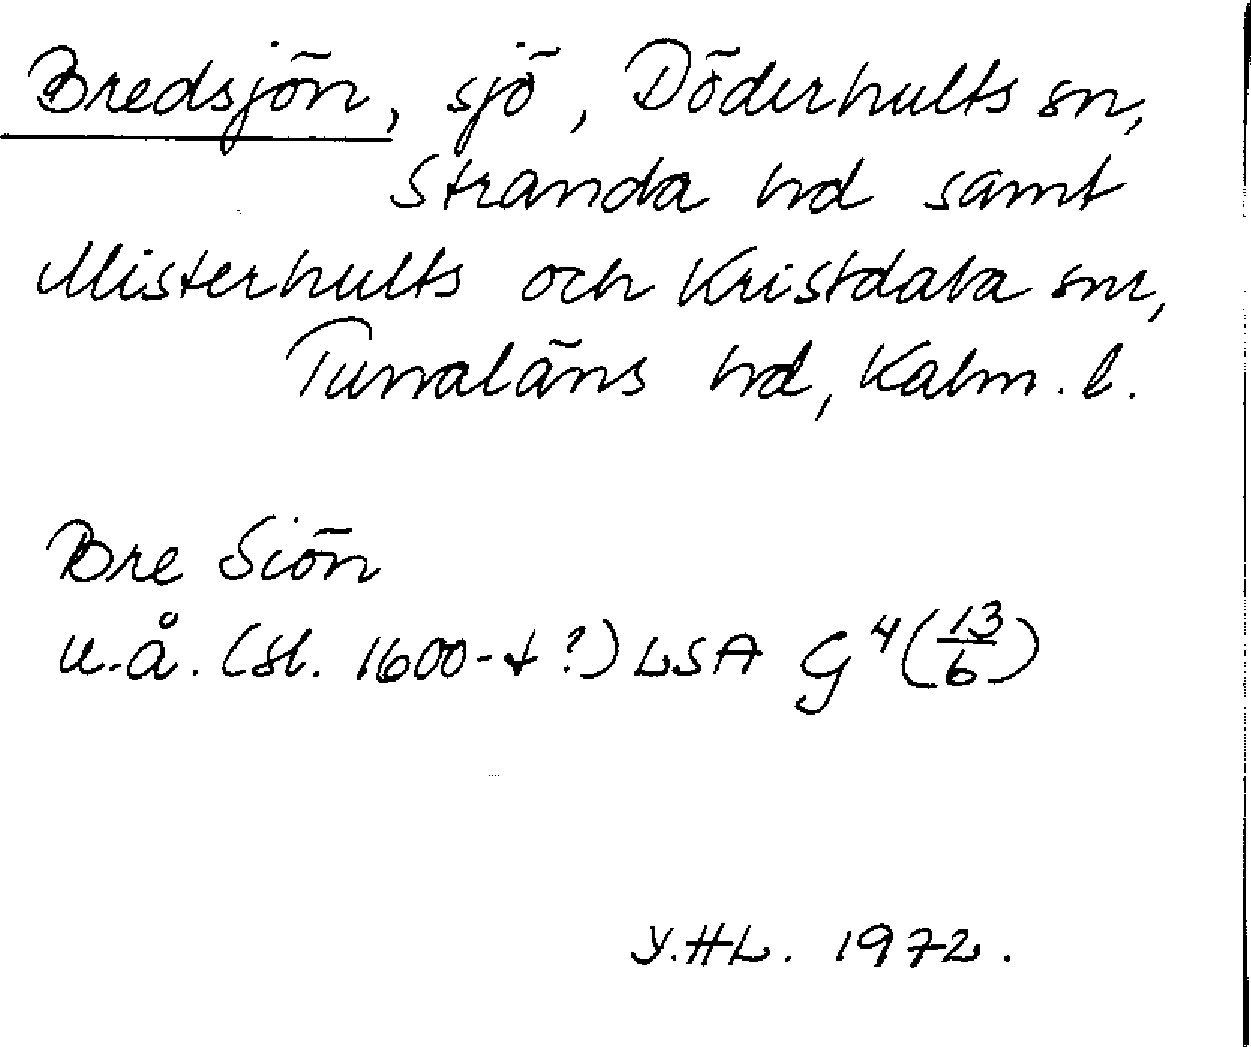 Bredsjön, sjö, Döderhults sn,
Stranda hd samt
Misterhults och Kristdala snr,
Tunaläns hd, Kalm. l.
Bre Siön
u.å. (sl. 1600-t ?) LSA G⁴(13/6)
Y.HL. 1972.